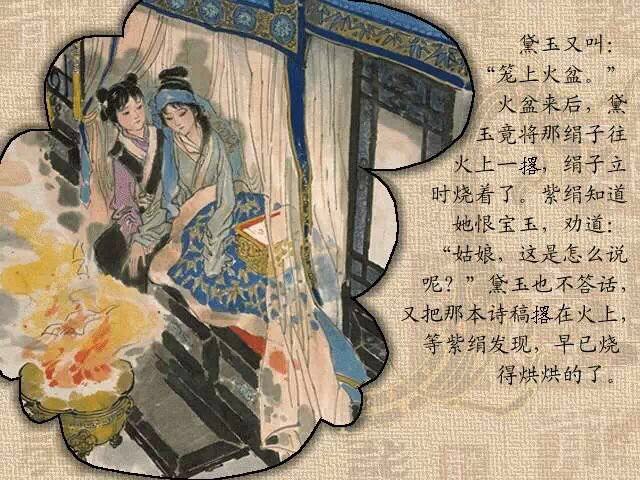 黛玉又叫：
“笼上火盆。”
火盆来后，黛
玉竟将那绢子往
火上一撂，绢子立
时烧着了。紫绢知道
她恨宝玉，劝道：
“姑娘，这是怎么说
呢？”黛玉也不答话，
又把那本诗稿撂在火上，
等紫绢发现，早已烧
得烘烘的了。